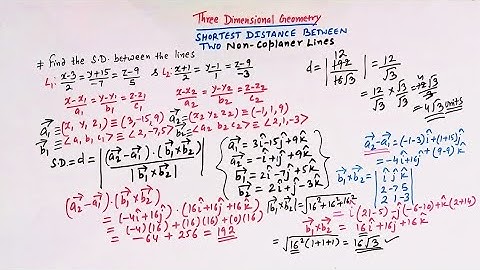 Three Dimensional Geometry
SHORTEST DISTANCE BETWEEN
TWO Non-Coplaner Lines
# Find the S.D. between the lines
L₁: x-3/2 = y+15/-7 = z-9/5 & L₂: x+1/2 = y-1/1 = z-9/-3
x-x₁/a₁ = y-y₁/b₁ = z-z₁/c₁   x-x₂/a₂ = y-y₂/b₂ = z-z₂/c₂
a₁⃗ ≡ (x, y, z₁) ≡ (3,-15,9)   a₂⃗ ≡ (x₂ y₂ z₂) ≡ (-1,1,9)
b₁⃗ ≡ <a, b, c₁> ≡ <2,-7,5>   b₂⃗ ≡ <a₂ b₂ c₂> ≡ <2,1,-3>
S.D. = d = |(a₂⃗-a₁⃗)·(b₁⃗×b₂⃗)/|b₁⃗×b₂⃗||
a₁⃗ = 3î-15ĵ+9k̂
a₂⃗ = -î+ĵ+9k̂
b₁⃗ = 2î-7ĵ+5k̂
b₂⃗ = 2î+ĵ-3k̂
(a₂⃗-a₁⃗)·(b₁⃗×b₂⃗)
= (-4î+16ĵ)·(16î+16ĵ+16k̂)
= (-4)(16)+(16)(16)+(0)(16)
= -64+256 = 192
|b₁⃗×b₂⃗| = √16²+16²+16²
= √16²(1+1+1) = 16√3 ✓
d = |192/16√3| = 12/√3
12
= 12/√3 × √3/√3 = 12√3/3
4
= 4√3 units
a₂⃗-a₁⃗ = (-1-3)î+(1+15)ĵ
+(9-9)k̂
= -4î+16ĵ
b₁⃗×b₂⃗ = |î ĵ k̂
2 -7 5
2 1 -3|
= î(21-5)-ĵ(-6-10)+k̂(2+14)
b₁⃗×b₂⃗ = 16î+16ĵ+16k̂